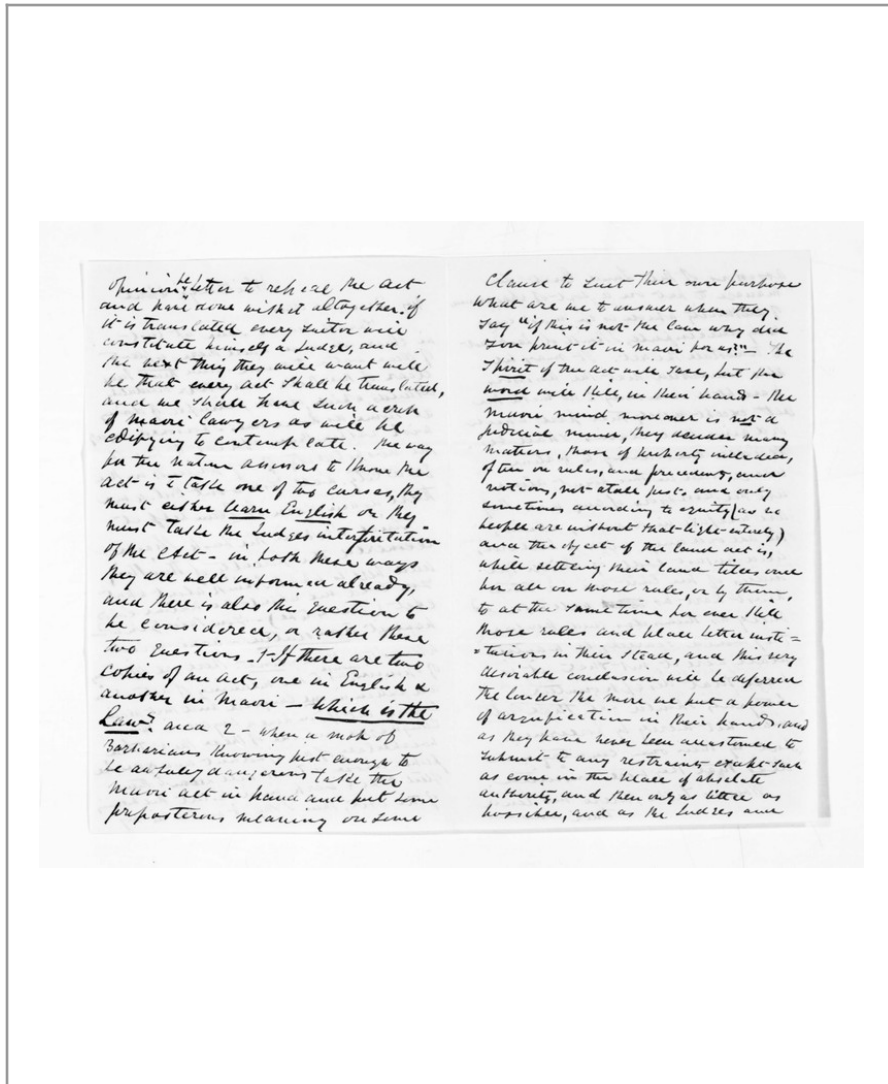 opinion be better to repeal the act
and have done with it altogether. if
it is translated every suitor will
constitute himself a Judge, and
the next thing they will want will
be that every act shall be translated,
and we shall have such a crop
of maori lawyers as will be
edifying to contemplate. the way
for the native assessors to know the
act is to take one of two courses, they
must either learn English or they
must take the Judges interpretation
of the Act - in both these ways
they are well informed already,
and there is also this question to
be considered, or rather these
two questions - 1 - If there are two
copies of an act, one in English &
another in Maori - which is the
Law? and 2 - when a mob of
Barbarians knowing just enough to
be awfully dangerous take the
Maori act in hand and put some
preposterous meaning on some
Clause to suit their own purpose
what are we to answer when they
say "if this is not the law why did
you print it in maori for us?" - The
Spirit of the act will save, but the
word will kill, in their hands - the
maori mind moreover is not a
judicial mind, they decide many
matters, those of property included,
often on rules, and precedents, and
notions, not at all just, and only
sometimes according to equity (as no
people are without that light entirely)
and the object of the land act is,
while settling their land titles once
for all on those rules, or by them,
to at the same time for ever kill
those rules and place better insti=
=tutions in their stead, and this very
desirable conclusion will be deferred
the longer the more we put a power
of argufication in their hands, and
as they have never been accustomed to
submit to any restraint except such
as come in the place of absolute
authority, and then only as little as
possible, and as the Judges and